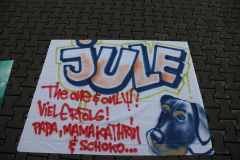 JULE
The one & only!!!
VIEL ERFOLG!
PAPA, MAMA, KATHRIN
& SCHOKO...